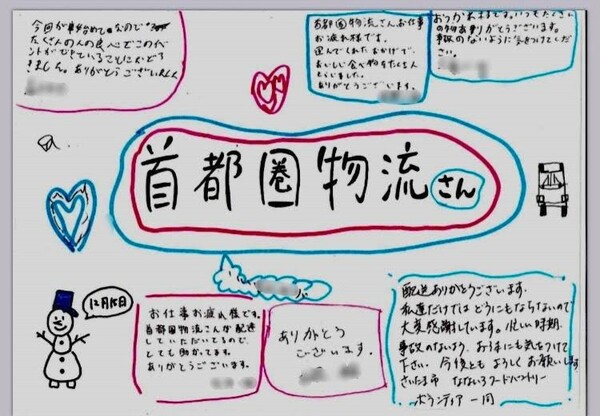 今回が初めてなので
たくさんの人の良べでこのイ
ベントができていることにかどろ
きました。ありがとうございました
首都圏物流さんお仕事
お疲れ様です。
運んでくれたおかげで、
おいしい食べ物をたくさん
もらいました。
ありがとうございます。
おつかれさまです。いつもたくさん
の物をありがとうございます。
事故のないように気をつけてくだ
さい。
首都圏物流さん
12月15日
お仕事お疲れ様です。
首都圏物流さんが配達
していただいてるので、
とても助かってます。
ありがとうございます。
ありがとう
ございます。
配送ありがとうございます。
私達だけではどうにもならないので
大変感謝しています。忙しい時期
事故のないよう、お体にも気をつけて
下さい。今後ともよろしくお願いします
さいたま市 なないろフードパントリー
ボランティア一同